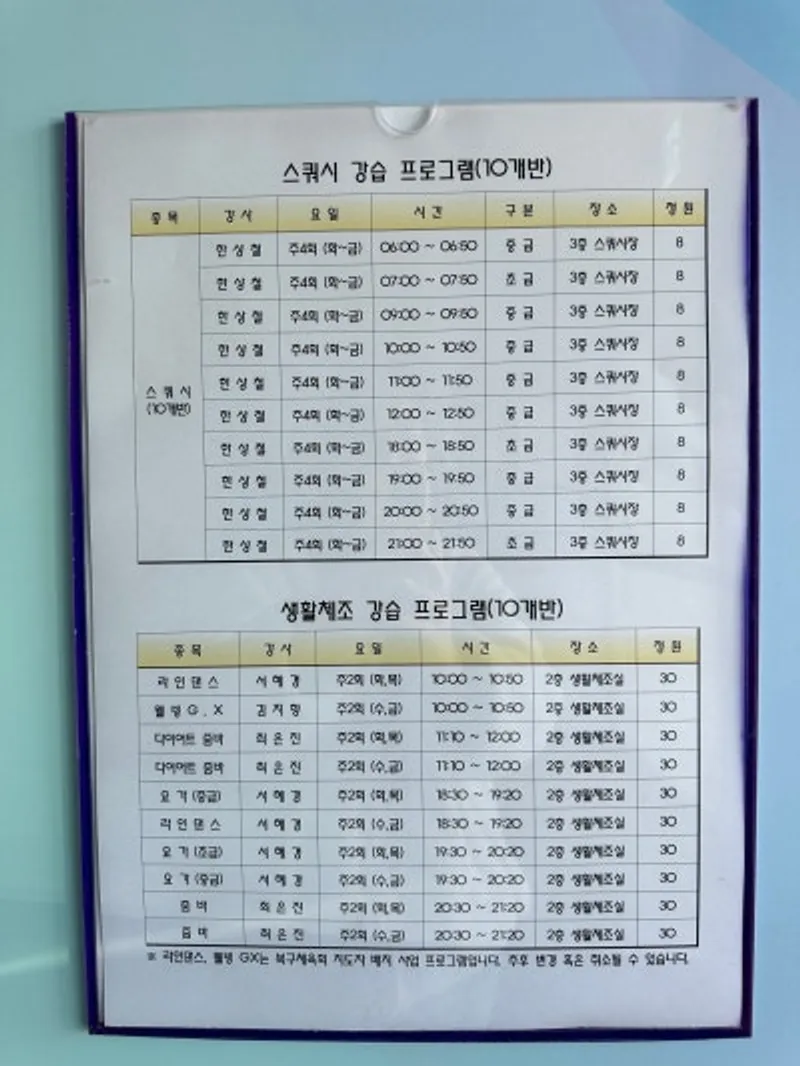 스쿼시 강습 프로그램(10개반)
종목 강사 요일 시간 구분 장소 정원
한상철 주4회 (화~금) 06:00 ~ 06:50 중급 3층 스쿼시장 8
한상철 주4회 (화~금) 07:00 ~ 07:50 초급 3층 스쿼시장 8
한상철 주4회 (화~금) 09:00 ~ 09:50 중급 3층 스쿼시장 8
한상철 주4회 (화~금) 10:00 ~ 10:50 중급 3층 스쿼시장 8
한상철 주4회 (화~금) 11:00 ~ 11:50 중급 3층 스쿼시장 8
스쿼시
(10개반)
한상철 주4회 (화~금) 12:00 ~ 12:50 중급 3층 스쿼시장 8
한상철 주4회 (화~금) 18:00 ~ 18:50 초급 3층 스쿼시장 8
한상철 주4회 (화~금) 19:00 ~ 19:50 중급 3층 스쿼시장 8
한상철 주4회 (화~금) 20:00 ~ 20:50 중급 3층 스쿼시장 8
한상철 주4회 (화~금) 21:00 ~ 21:50 초급 3층 스쿼시장 8
생활체조 강습 프로그램(10개반)
종목 강사 요일 시간 장소 정원
라인댄스 서혜경 주2회 (화,목) 10:00 ~ 10:50 2층 생활체조실 30
웰빙G.X 김지형 주2회 (수,금) 10:00 ~ 10:50 2층 생활체조실 30
다이어트 줌바 최은진 주2회 (화,목) 11:10 ~ 12:00 2층 생활체조실 30
다이어트 줌바 최은진 주2회 (수,금) 11:10 ~ 12:00 2층 생활체조실 30
요가(중급) 서혜경 주2회 (화,목) 18:30 ~ 19:20 2층 생활체조실 30
라인댄스 서혜경 주2회 (수,금) 18:30 ~ 19:20 2층 생활체조실 30
요가(초급) 서혜경 주2회 (화,목) 19:30 ~ 20:20 2층 생활체조실 30
요가(중급) 서혜경 주2회 (수,금) 19:30 ~ 20:20 2층 생활체조실 30
줌바 최은진 주2회 (화,목) 20:30 ~ 21:20 2층 생활체조실 30
줌바 최은진 주2회 (수,금) 20:30 ~ 21:20 2층 생활체조실 30
※ 라인댄스, 웰빙 GX는 북구체육회 지도자 배치 사업 프로그램입니다. 추후 변경 혹은 취소될 수 있습니다.